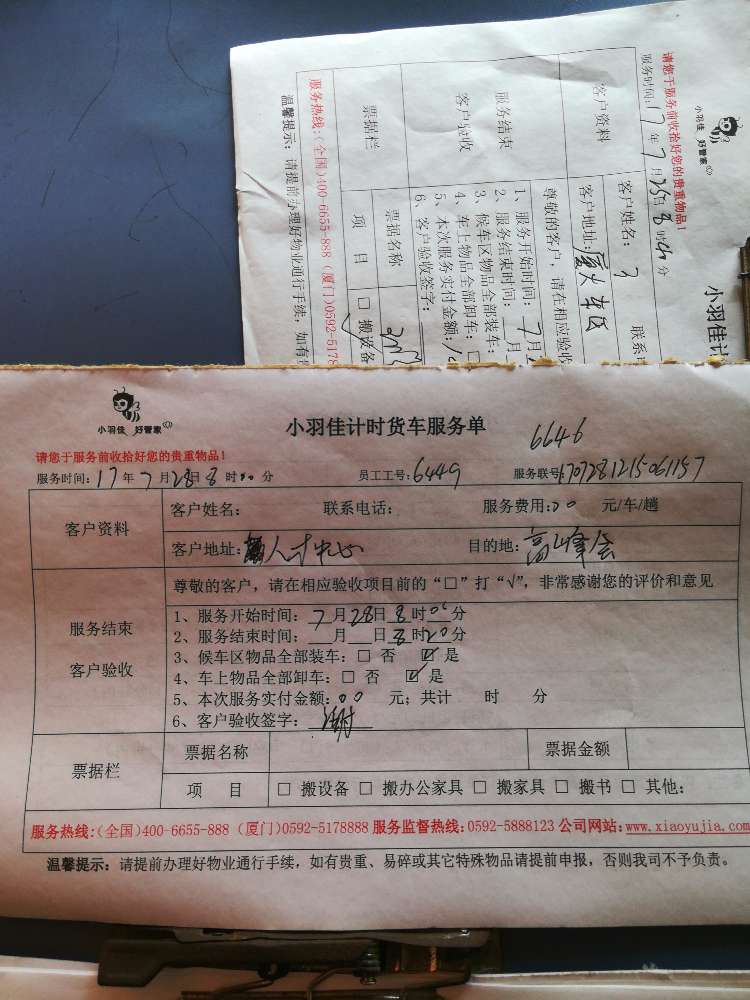 小羽佳 好管家
请您于服务前收拾好您的贵重物品!
服务时间:17年7月25日8时 分
小羽佳计
客户资料
客户姓名: 联系
客户地址:厦大车民
服务结束
客户验收
尊敬的客户,请在相应验收
1、服务开始时间: 7月
2、服务结束时间: 月
3、候车区物品全部装车:□
4、车上物品全部卸车:□
5、本次服务实付金额:
6、客户验收签字:
票据栏
票据名称
项 目 □ 搬设备
服务热线:(全国)400-6655-888 (厦门)0592-5178
温馨提示: 请提前办理好物业通行手续,如有
小羽佳 好管家
小羽佳计时货车服务单
6646
请您于服务前收拾好您的贵重物品!
服务时间:17年7月28日8时00分 员工工号:6449 服务联号:1707281215061157
客户资料
客户姓名: 联系电话: 服务费用:70 元/车/趟
客户地址:人才中心 目的地:高峰会
服务结束
客户验收
尊敬的客户,请在相应验收项目前的“□”打“√”,非常感谢您的评价和意见
1、服务开始时间: 7月28日8时00分
2、服务结束时间: 月 日8时20分
3、候车区物品全部装车:□ 否 ☑ 是
4、车上物品全部卸车:□ 否 ☑ 是
5、本次服务实付金额: 元; 共计 时 分
6、客户验收签字:
票据栏
票据名称 票据金额
项 目 □ 搬设备 □ 搬办公家具 □ 搬家具 □ 搬书 □ 其他:
服务热线:(全国)400-6655-888 (厦门)0592-5178888 服务监督热线:0592-5888123 公司网站:www.xiaoyujia.com
温馨提示: 请提前办理好物业通行手续,如有贵重、易碎或其它特殊物品请提前申报,否则我司不予负责。